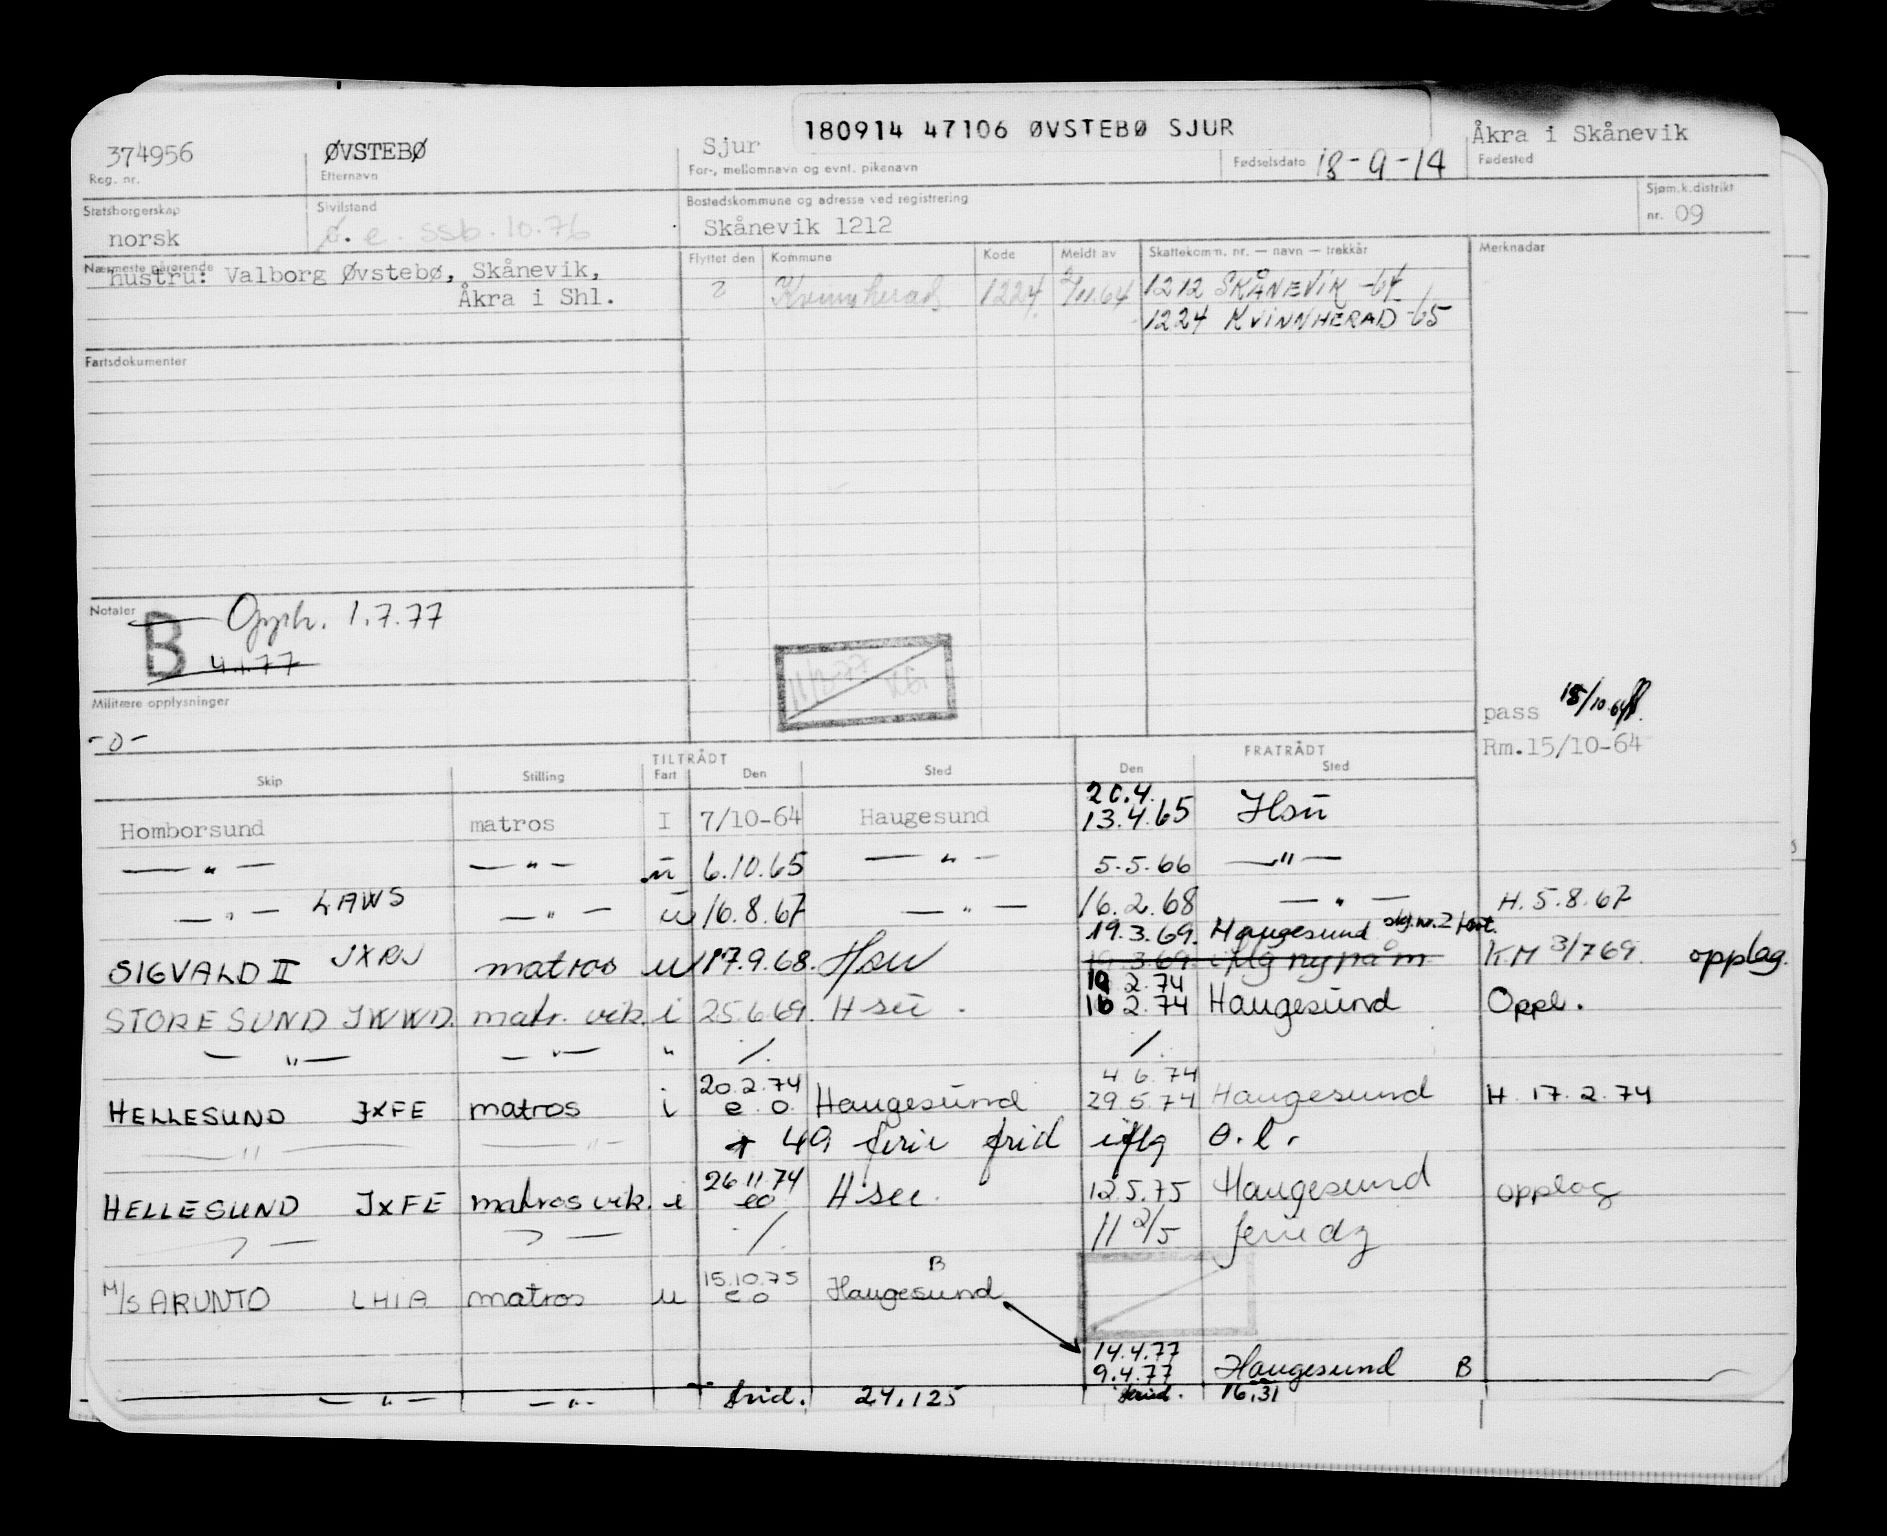 180914 47106 ØVSTEBØ SJUR
374956 ØVSTEBØ Sjur 18-9-14 Åkra i Skånevik
Reg. nr. Etternavn For-, mellomnavn og evnt. pikenavn Fødselsdato Fødested
Statsborgerskap Sivilstand Bostedskommune og adresse ved registrering Sjøm.k.distrikt
norsk e. ssb. 10.76 Skånevik 1212 nr. 09
Nærmeste pårørende Flyttet den Kommune Kode Meldt av Skattekomm. nr. — navn — trekkår Merknader
hustru: Valborg Øvstebø, Skånevik,
Åkra i Shl.
? Kvinnherad 1224 1212 SKÅNEVIK -64
1224 KVINNHERAD -65
Fartsdokumenter
Notater
B Opph. 1.7.77
4.1.77
Militære opplysninger
-0-
pass 15/10.64
Rm.15/10-64
TILTRÅDT FRATRÅDT
Skip Stilling Fart Den Sted Den Sted
20.4.
Homborsund matros I 7/10-64 Haugesund 13.4.65 Hsu
— " — — " — u 6.10.65 — " — 5.5.66 — " —
— " — LAWS — " — u 16.8.67 — " — 16.2.68 — " — H. 5.8.67
19.3.69. Haugesund
SIGVALD II JXRJ matros u 17.9.68. Hsu KM 3/7 69. opplag.
19 2.74
STORESUND JWWD. matr. vik. i 25.6.69. Hsu. 16 2.74 Haugesund Oppl.
— " — — " — " /. /.
20.2.74 4.6.74
HELLESUND JXFE matros i e.o. Haugesund 29 5.74 Haugesund H. 17.2.74
— " — — " — + 49 ferie frid iflg o.l.
26.11.74
HELLESUND JXFE matros vik. i eo Hsu. 12.5.75 Haugesund opplag
/. 11 2/5 feriedg
15.10.75 B
M/S ARUNTO LHIA matros u eo Haugesund
14.4.77
9.4.77 Haugesund B
— " — — " — frid. 24,125 frid. 16,31